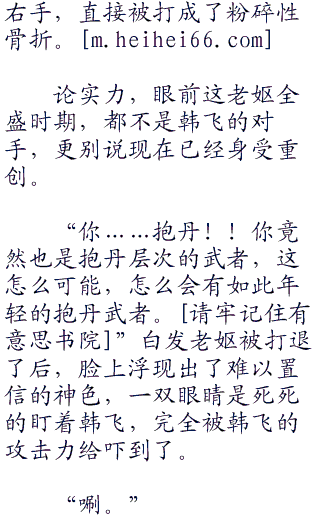 右手，直接被打成了粉碎性
骨折。[m.heihei66.com]
论实力，眼前这老妪全
盛时期，都不是韩飞的对
手，更别说现在已经身受重
创。
“你……抱丹！！你竟
然也是抱丹层次的武者，这
怎么可能，怎么会有如此年
轻的抱丹武者。[请牢记住有
意思书院]”白发老妪被打退
了后，脸上浮现出了难以置
信的神色，一双眼睛是死死
的盯着韩飞，完全被韩飞的
攻击力给吓到了。
“唰。”